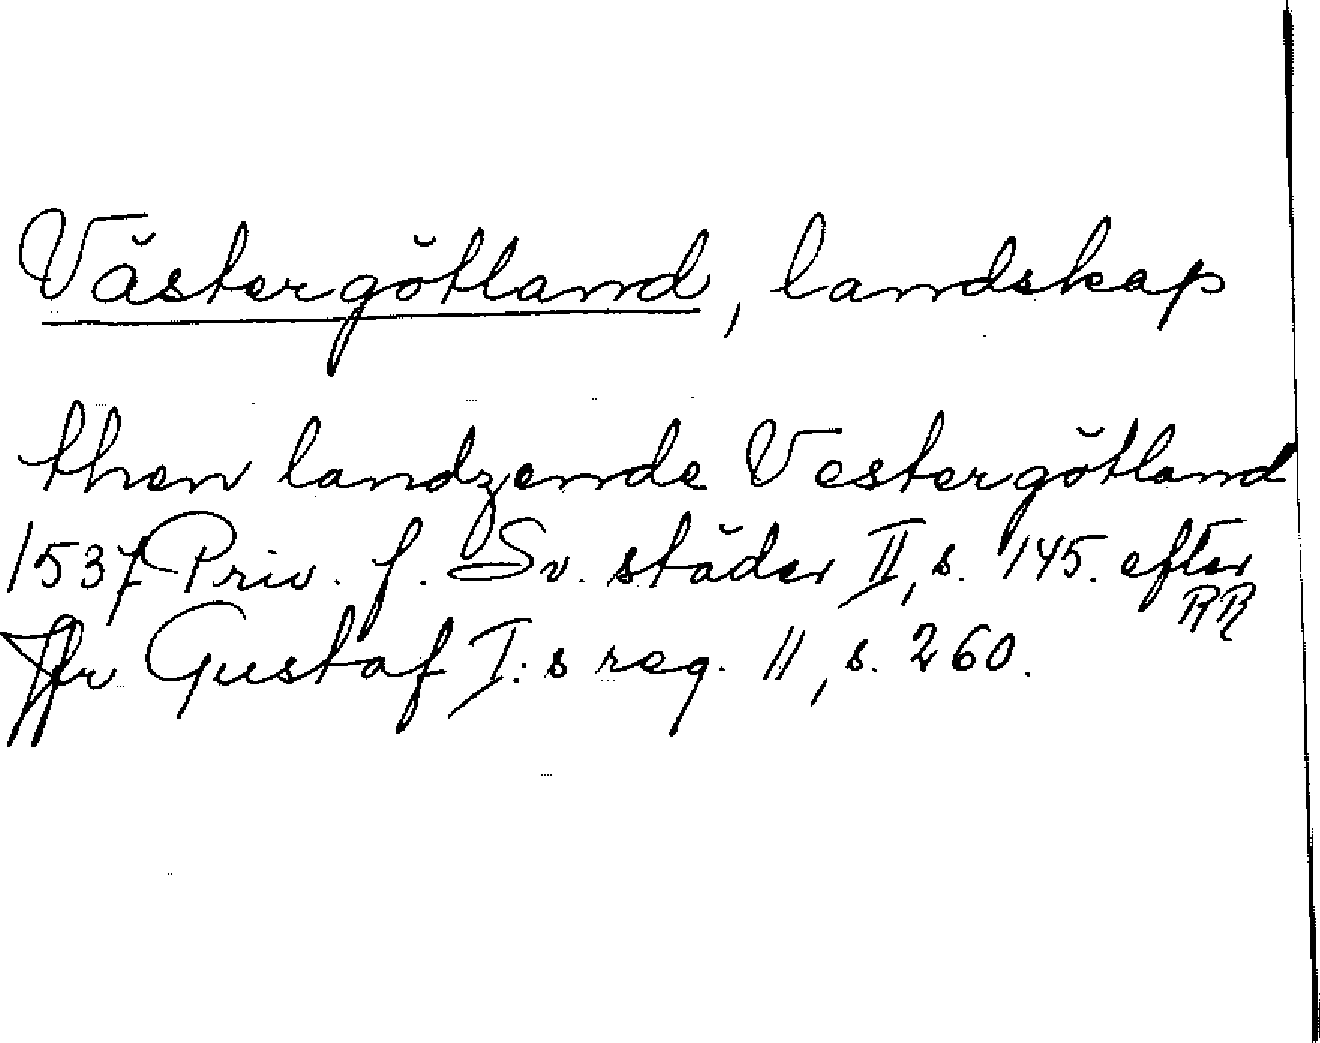 Västergötland, landskap
then landzende Vestergötland
1537 Priv. f. Sv. städer II, s. 145. efter RR
Jfr Gustaf I:s reg. 11, s. 260.